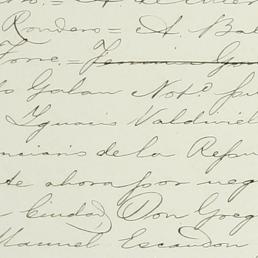 Rondero = A. Bal
Torre. = Fermin Gon
to Galan Not.o pu
Ygnacio Valdiviel
enciario de la Repu
te ahora por neg
Ciudad, Don Greg
Manuel Escandon